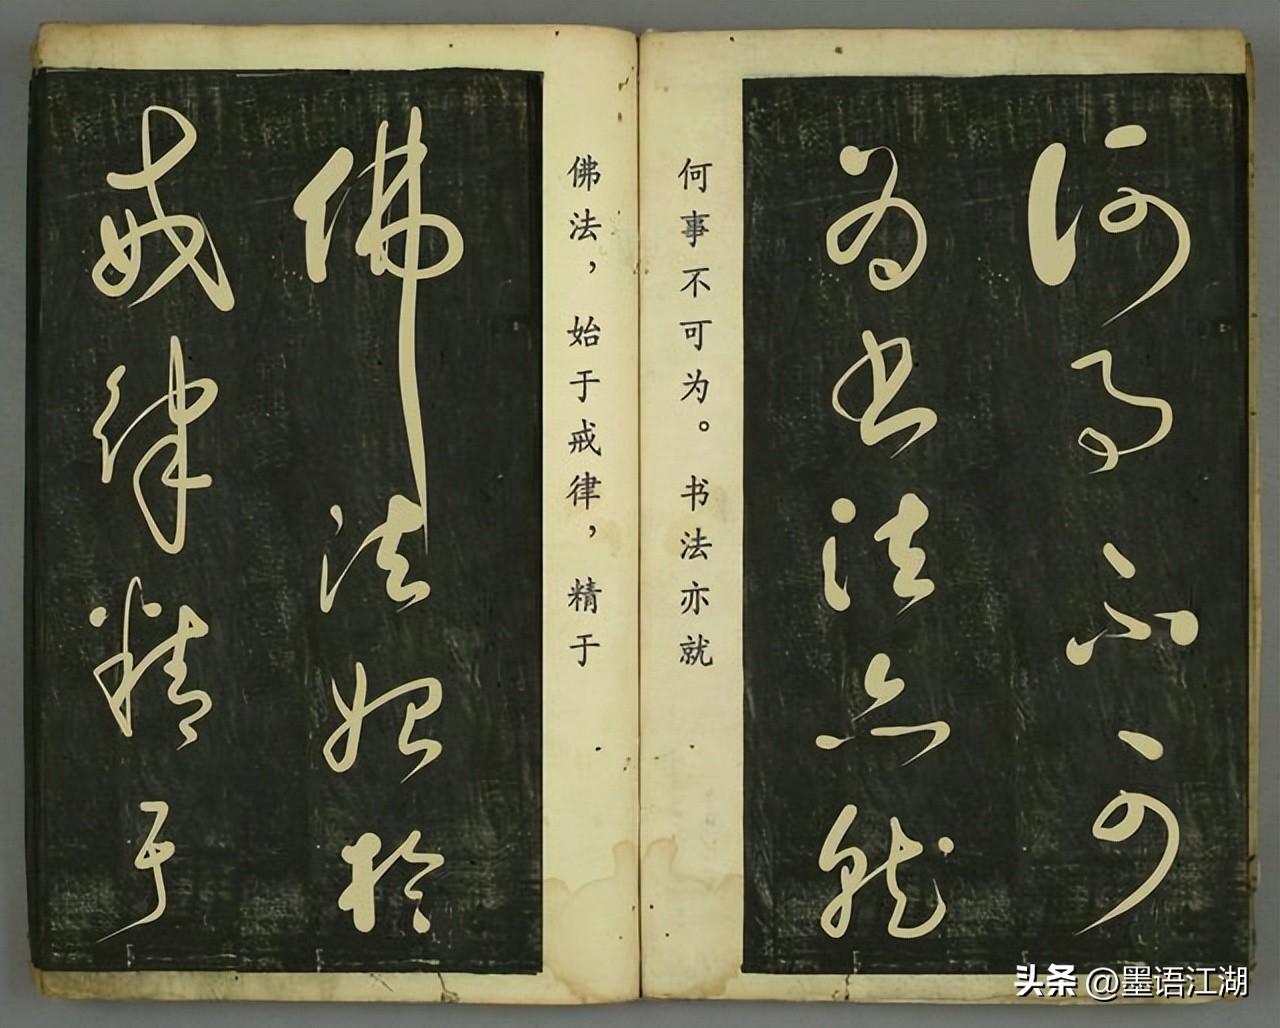 何事不可
為書法亦就
何事不可为。书法亦就
佛法，始于戒律，精于
佛法始於
戒律精于
头条 @墨语江湖